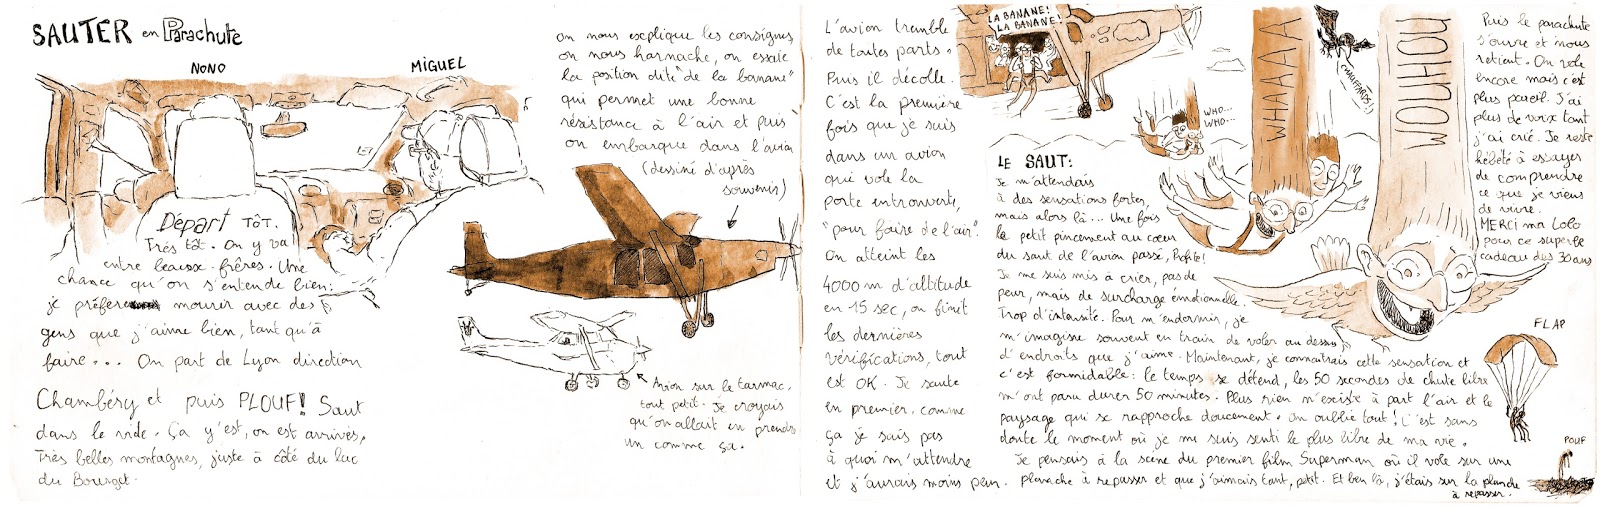 SAUTER en Parachute
NONO
MIGUEL
Départ TÔT.
Très tôt. On y va
entre beaux-frères. Une
chance qu'on s'entende bien:
je préfere mourir avec des
gens que j'aime bien, tant qu'à
faire... On part de Lyon direction
Chambéry et puis PLOUF! Saut
dans le vide. Ça y'est, on est arrivés.
Très belles montagnes, juste à côté du lac
du Bourget.
On nous explique les consignes,
on nous harnache, on essaie
la position dite "de la banane"
qui permet une bonne
résistance à l'air et puis
on embarque dans l'avion
(dessiné d'après
souvenir)
Avion sur le tarmac,
tout petit. Je croyais
qu'on allait en prendre
un comme ça.
L'avion tremble
de toutes parts.
Puis il décolle.
C'est la première
fois que je suis
dans un avion
qui vole la
porte entrouverte,
"pour faire de l'air".
On atteint les
4000 m d'altitude
en 15 sec, on finit
les dernières
vérifications, tout
est OK. Je saute
en premier, comme
ça je sais pas
à quoi m'attendre
et j'aurais moins peur.
LA BANANE!
LA BANANE!
WHO...
WHO...
WHAAAA
CHAUFFARDS!!
WOUHOU
LE SAUT:
Je m'attendais
à des sensations fortes,
mais alors là... Une fois
le petit pincement au cœur
du saut de l'avion passé, Pfofite!
Je me suis mis à crier, pas de
peur, mais de surcharge émotionnelle.
Trop d'intensité. Pour m'endormir, je
m'imagine souvent en train de voler au dessus
d'endroits que j'aime. Maintenant, je connaitrais cette sensation et
c'est formidable: le temps se détend, les 50 secondes de chute libre
m'ont paru durer 50 minutes. Plus rien n'existe à part l'air et le
paysage qui se rapproche doucement. On oublie tout! C'est sans
doute le moment où je me suis senti le plus libre de ma vie.
Je pensais à la scène du premier film Superman où il vole sur une
planche à repasser et que j'aimais tant, petit. Et ben là, j'étais sur la planche
à repasser.
Puis le parachute
s'ouvre et nous
retient. On vole
encore mais c'est
plus pareil. J'ai
plus de voix tant
j'ai crié. Je reste
hébété à essayer
de comprendre
ce que je viens
de vivre.
MERCI ma Lolo
pour ce superbe
cadeau des 30 ans
FLAP
POUF